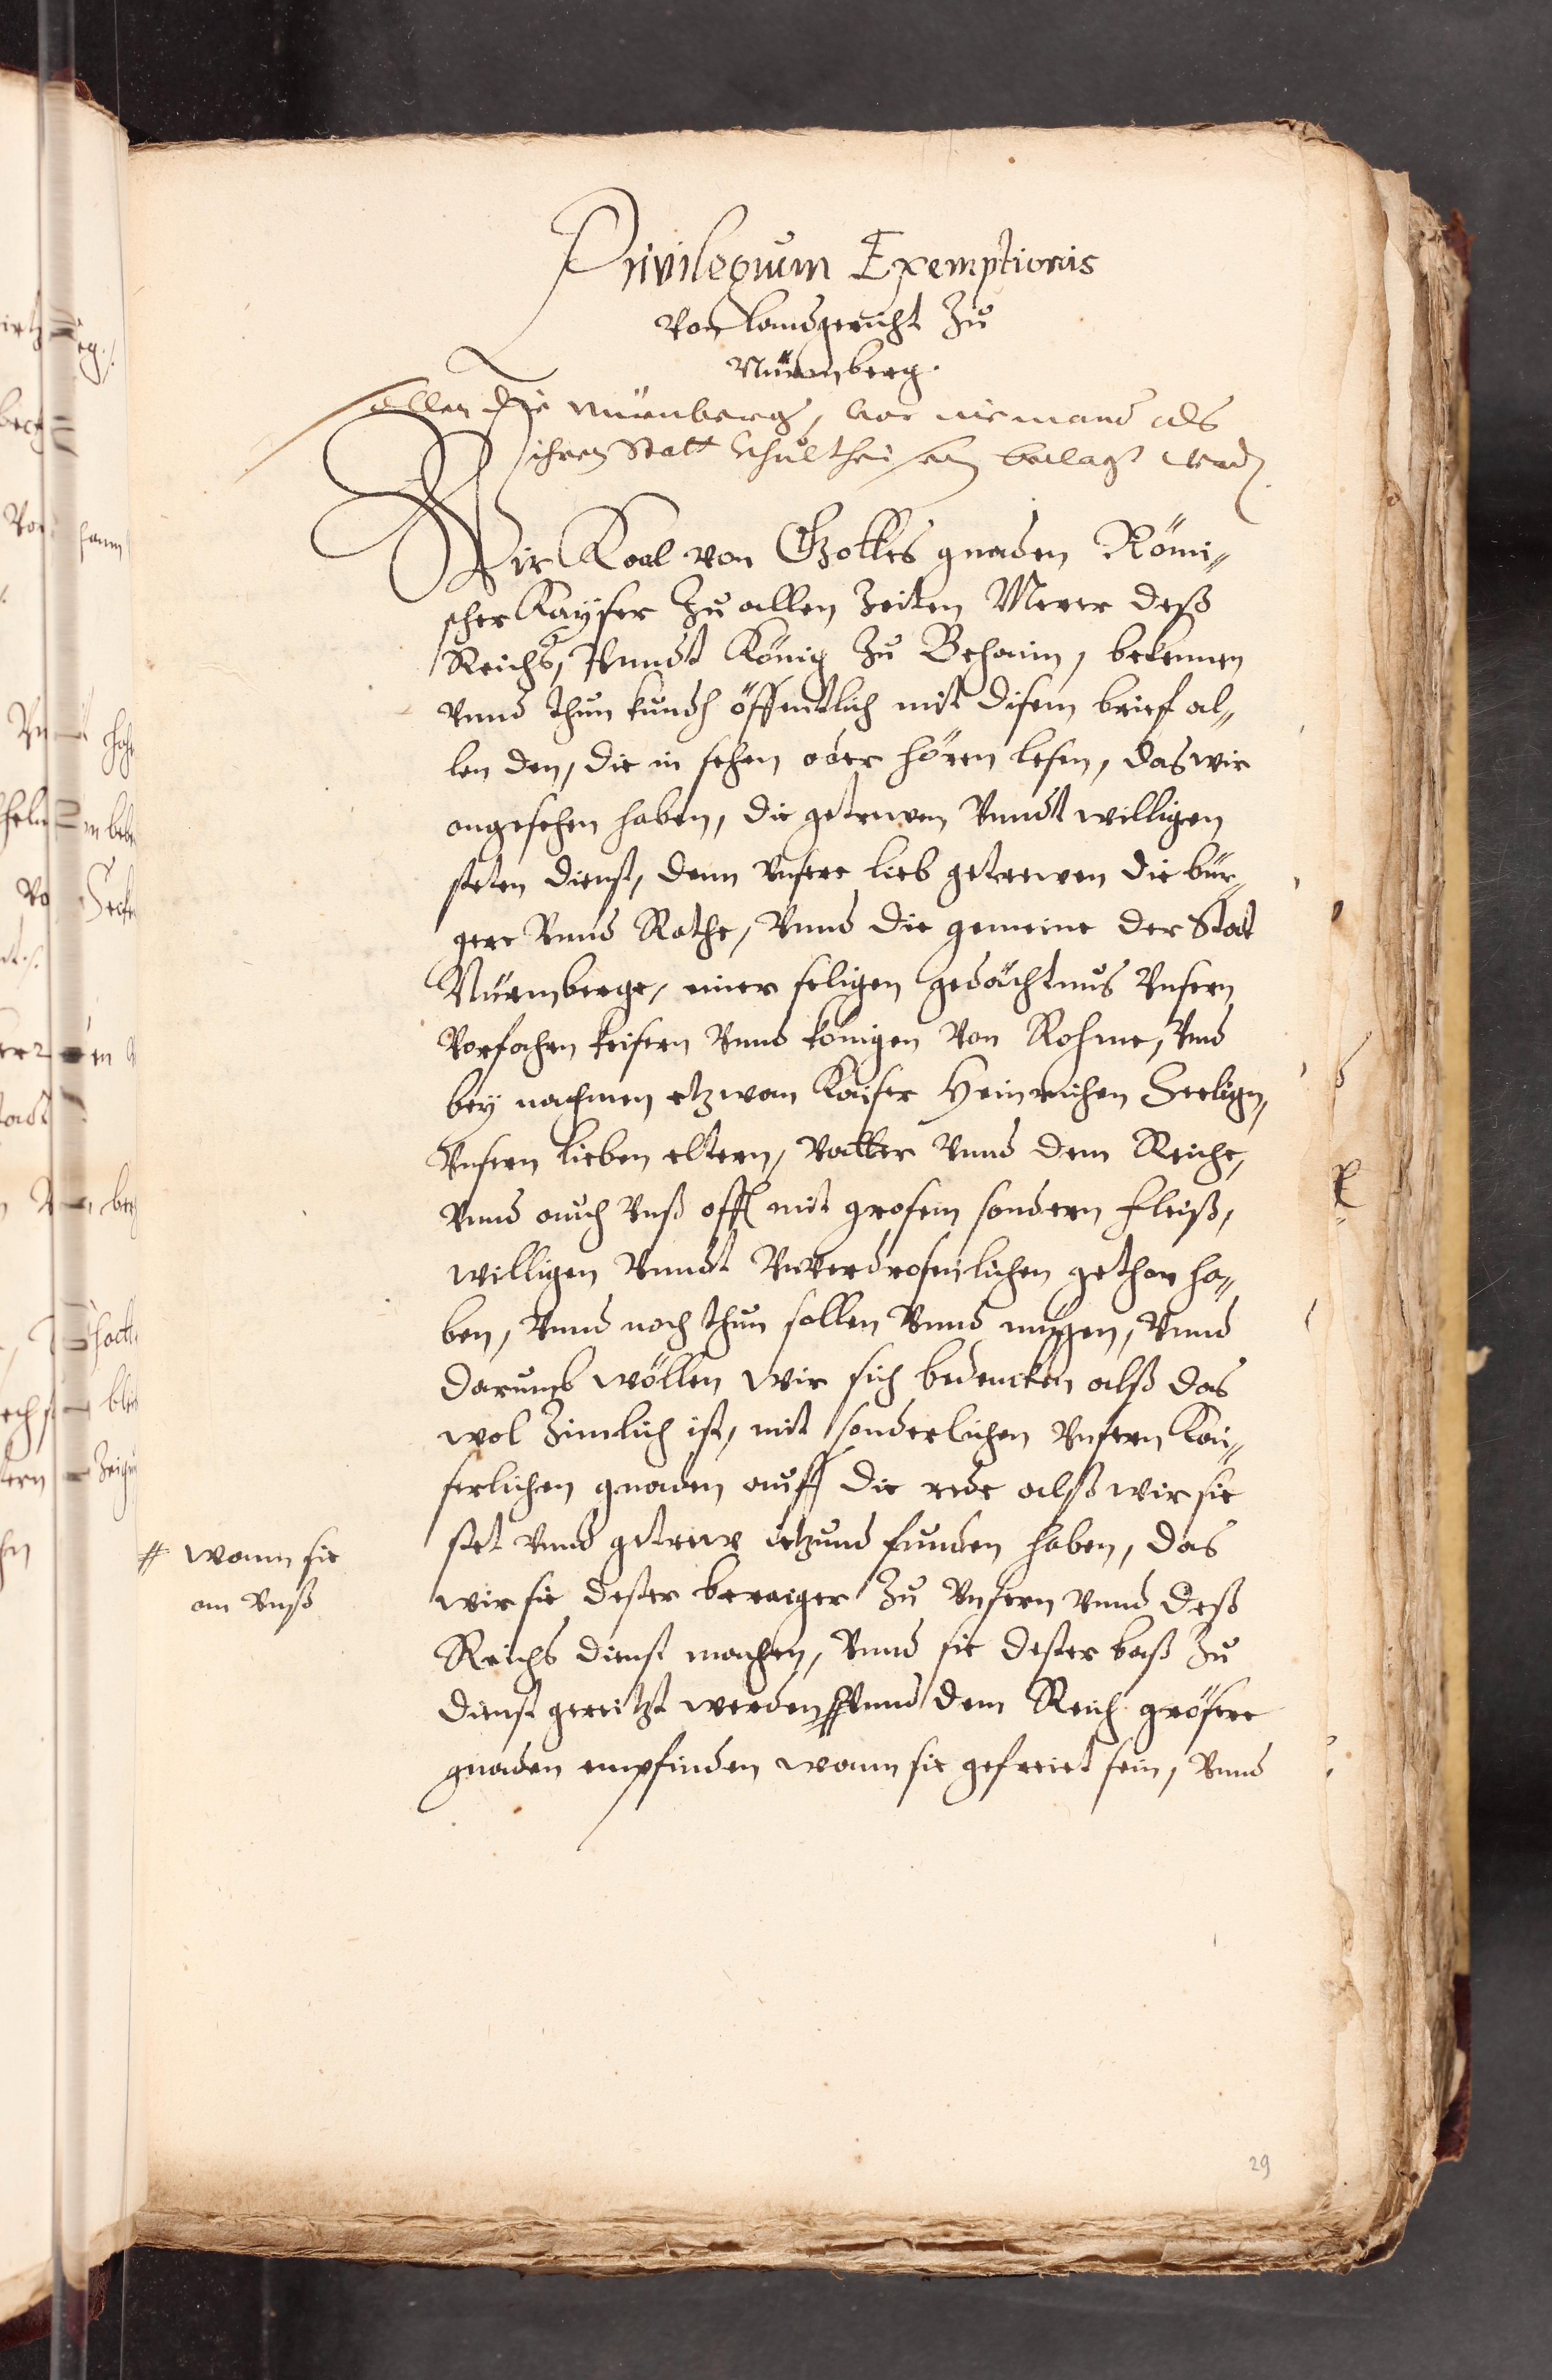 Privilegium Exemptionis
Von Landgericht Zu
Nürmberg.
sollen die Nürnberg, vor niemand als
ihren Statt Schultheisen beclagt werd
Wir Karl von Gottes gnaden Römi„
scher Kayser Zu allen Zeiten Merer deß
Reichs, Vnndt König Zu Behaim, bekennen
vnnd thun kundh öffentlich mit disem brief al„
len den, die in sehen oder hören lesen, das wir
angesehen haben, die getrewen Vnndt willigen
steten dienst, denn Vnsere lieb getrewen die bür„
gere Vnnd Rathe, Vnnd die gemeine der Stat
Nürmberge, einer seligen gedächtnus Vnsern
Vorfahrn keisern Vnnd königen Von Rohme, Vnd
bey nahmen etzwan Kaiser Heinrichen Seelign,
Vnsern lieben eltern, Vatter Vnnd dem Reiche,
Vnnd auch Vnß offt mit grosem sondern fleiß,
willigen Vnndt Vnverdrosenlichen gethan ha„
ben, Vnnd noch thun sollen Vnnd mügen, Vnnd
darumb wöllen wir sich bedencken alß das
wol Zimlich ist, mit sonderlichen Vnsern Kai„
serlichen gnaden auff die rede alß wir sie
stet vnnd getrew itzund funden haben, das
wir sie dester beraiger Zu Vnsern vnnd deß
Reichs dienst machen, Vnnd sie dester baß Zu
dienst gereitzt werden # Vnnd dem Reich grösere
gnaden empfinden wann sie gefreiet sein, Vnnd
# wann sie
an Vnß
29